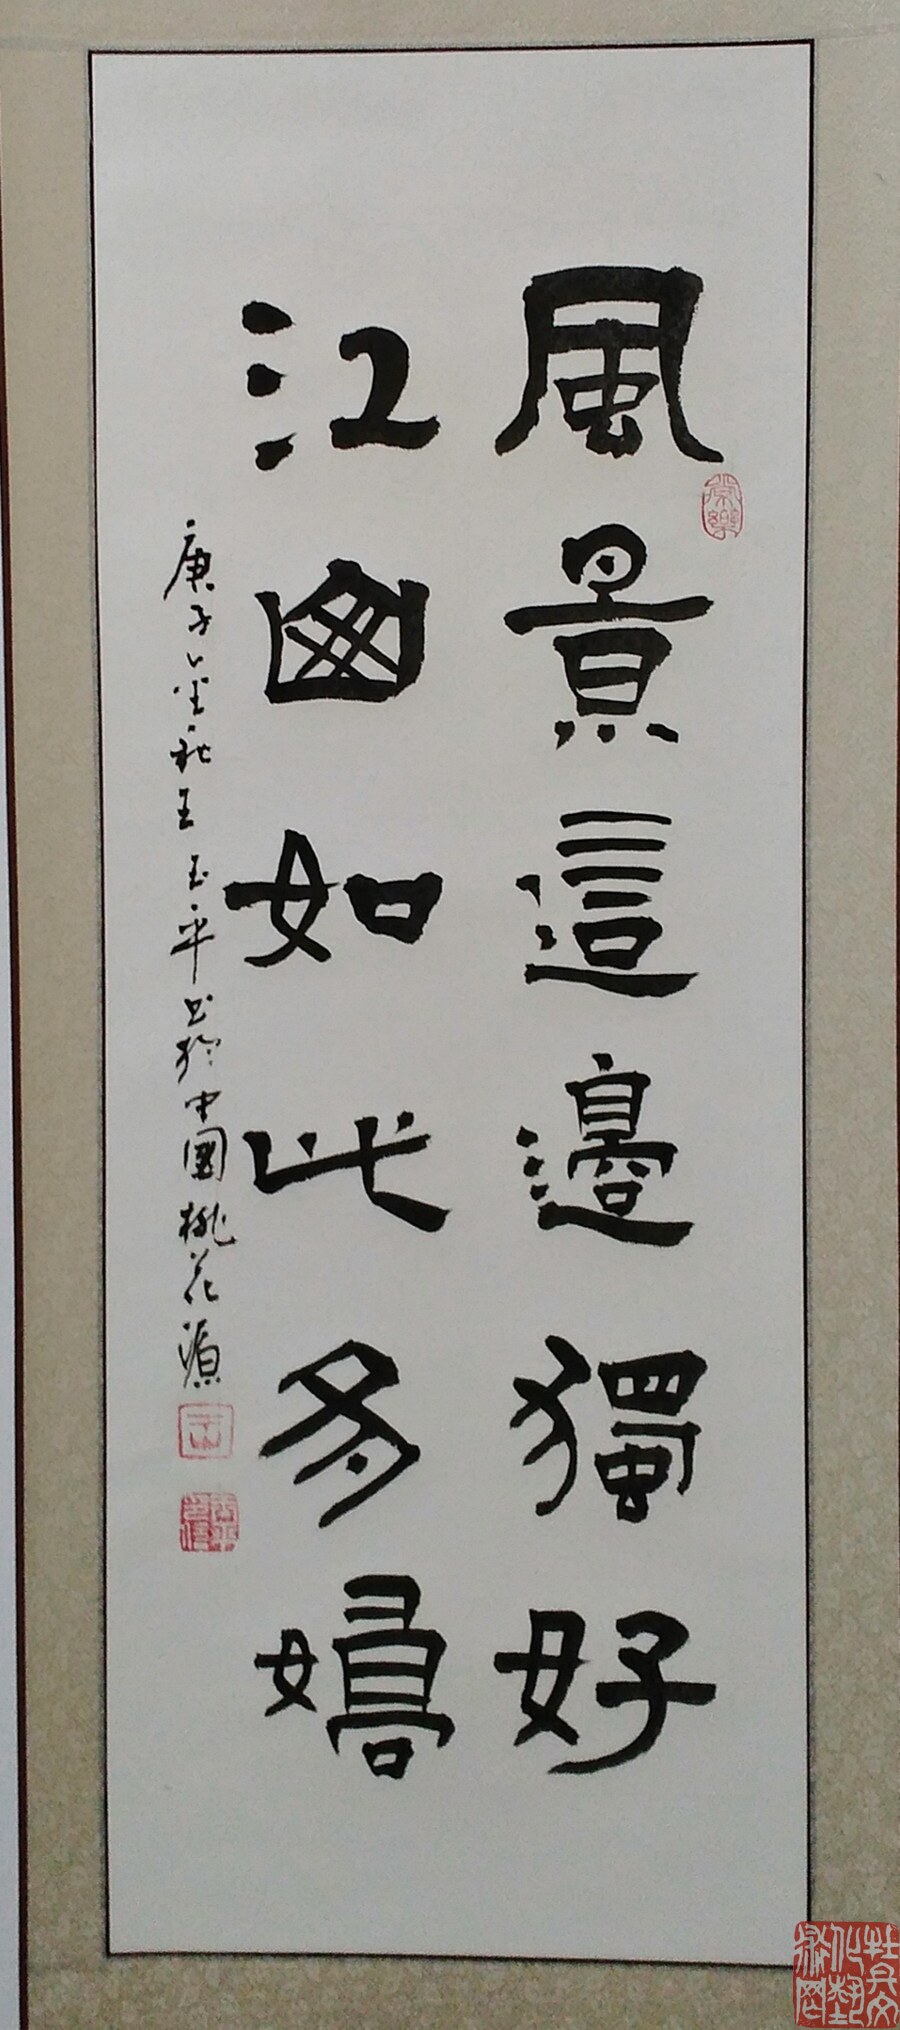 常樂
風景這邊獨好
江山如此多嬌
庚子金秋王玉平书於中國桃花源
王